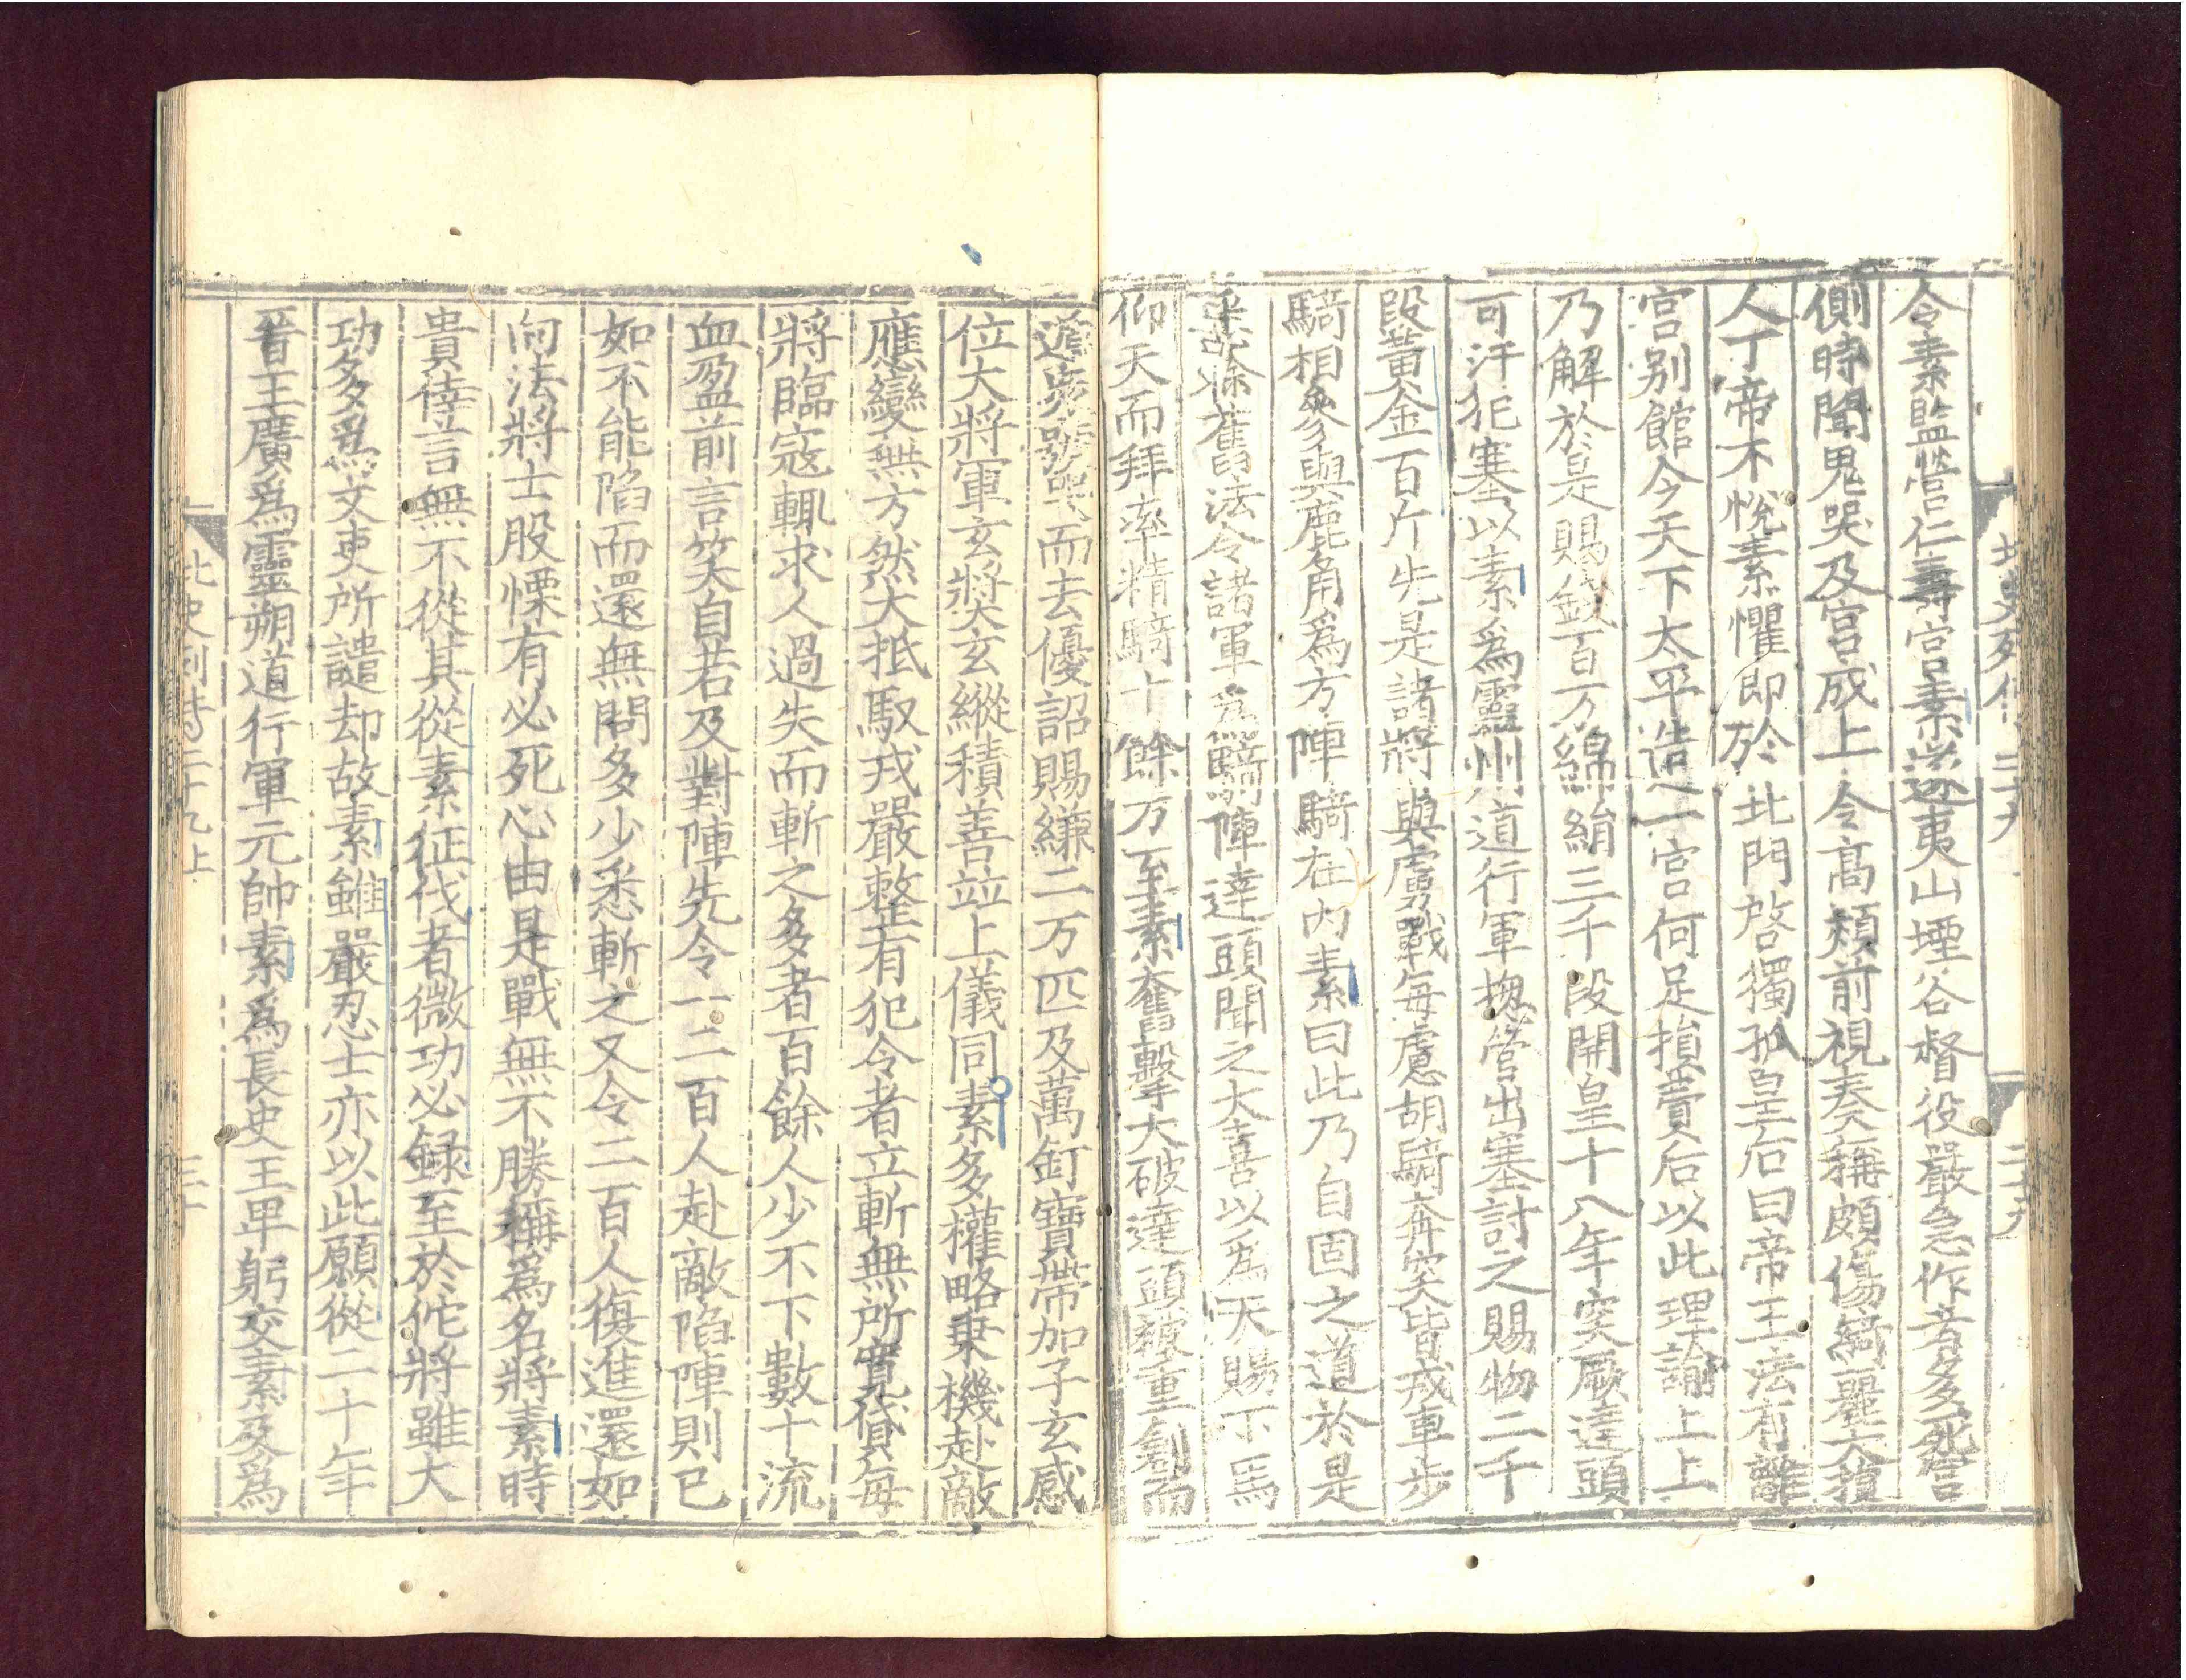 北史列傳二十九
二十九
令素監營仁壽宮素遂夷山堙谷督役嚴急作者多死宮
側時聞鬼哭及宮成上令高熲前視奏稱頗傷綺麗大損
人丁帝不悅素懼即於北門啓獨孤皇后曰帝王法有離
宮别館今天下太平造一宮何足損費后以此理諭上上
乃解於是賜錢百万綿絹三千段開皇十八年突厥達頭
可汗犯塞以素爲靈州道行軍揔管出塞討之賜物二千
段黄金百斤先是諸將與虜戰每慮胡騎奔突皆戎車步
騎相參輿鹿角爲方陣騎在内素曰此乃自固之道於是
悉除舊法令諸軍爲騎陣達頭聞之大喜以爲天賜下馬
仰天而拜率精騎十餘万至素奮擊大破達頭被重創而
遁衆號哭而去優詔賜縑二万匹及萬釘寶帶加子玄感
位大將軍玄奬玄縱積善竝上儀同素多權略乗機赴敵
應變無方然大抵馭戎嚴整有犯令者立斬無所寬貸每
將臨寇輒求人過失而斬之多者百餘人少不下數十流
血盈前言笑自若及對陣先令一二百人赴敵陷陣則已
如不能陷而還無問多少悉斬之又令二百人復進還如
向法將士股慄有必死心由是戰無不勝稱爲名將素時
貴倖言無不從其從素征伐者微功必録至於佗將雖大
功多爲文吏所譴却故素雖嚴忍士亦以此願從二十年
晉王廣爲靈朔道行軍元帥素爲長史王卑躬交素及爲
北史列傳二十九上
三十